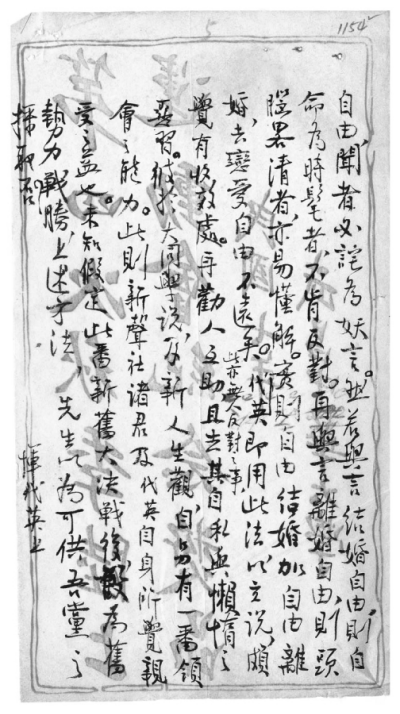 1154
自由，聞者必詫為妖言。然若與言結婚自由，則自
命為時髦者，不肯反對。再與言離婚自由，則頭
腦畧清者，亦易懂解。實則自由結婚，加自由離
婚，去戀愛自由不遠矣。代英即用此法以立說，頗
此亦無人反對之事，
覺有收效處。再勸人互助且去其自私與懶惰之
惡習。後於大同學說，及新人生觀，自易有一番領
會之能力。此則新聲社諸君及代英自身所覺親
受之益也。未知假定此番新舊大決戰後，為舊
勢力戰勝，上述方法，先生以為可供吾黨之
採取否。
惲代英上